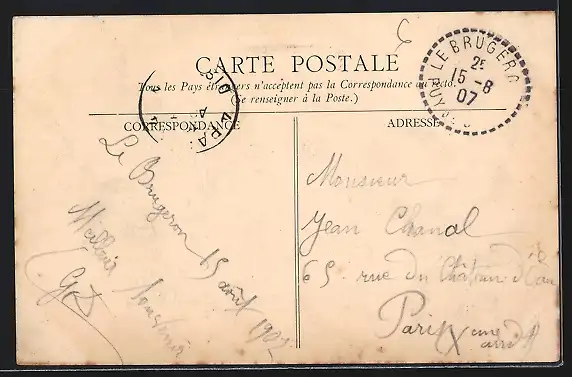 CARTE POSTALE
Tous les Pays étrangers n'acceptent pas la Correspondance au recto.
(Se renseigner à la Poste.)
CORRESPONDANCE
ADRESSE
LE BRUGERO
2E
15 -8
07
PUY
PARIS
Le Brugeron 15 août 1907
Meilleur souvenir
GD
Monsieur
Jean Chanal
65 rue du Château d'Eau
Paris Xme
arrdt